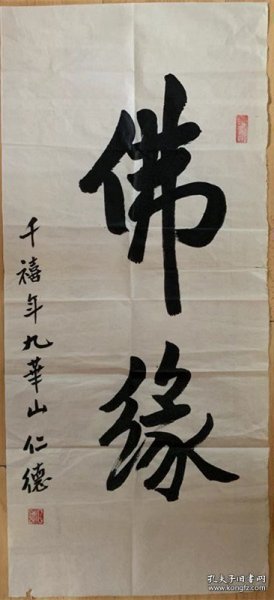 佛缘
千禧年九華山仁德
孔夫子旧书网
book.kongfz.com